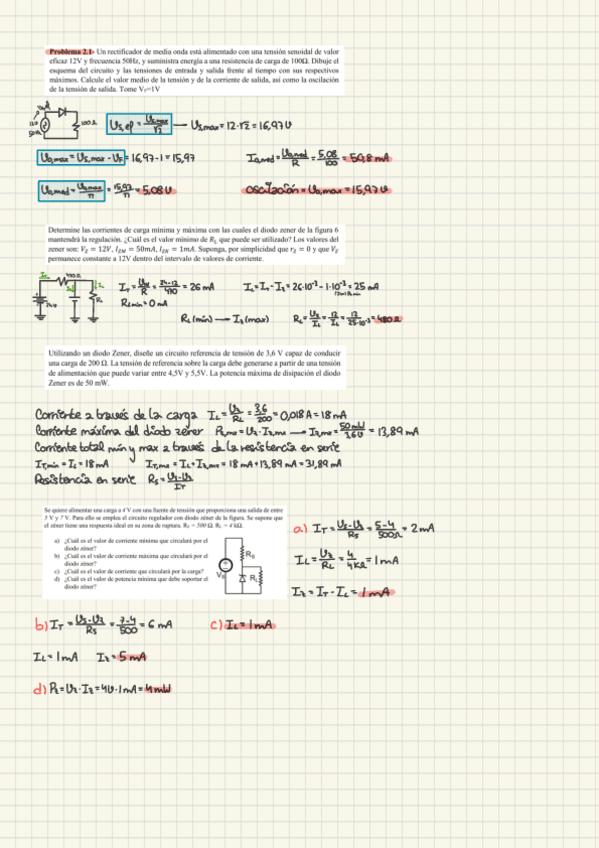 Problema 2.1- Un rectificador de media onda está alimentado con una tensión senoidal de valor
eficaz 12V y frecuencia 50Hz, y suministra energía a una resistencia de carga de 100Ω. Dibuje el
esquema del circuito y las tensiones de entrada y salida frente al tiempo con sus respectivos
máximos. Calcule el valor medio de la tensión y de la corriente de salida, así como la oscilación
de la tensión de salida. Tome V_F=1V
100Ω
50Hz
U_s,ef = U_s,max/√2 → U_s,max = 12·√2 = 16,97V
U_o,max = U_s,max - U_F = 16,97-1 = 15,97
I_o,med = U_o,med/R = 5,08/100 = 50,8 mA
U_o,med = U_o,max/π = 15,97/π = 5,08 V
oscilación = U_o,max = 15,97V
Determine las corrientes de carga mínima y máxima con las cuales el diodo zener de la figura 6
mantendrá la regulación. ¿Cuál es el valor mínimo de R_L que puede ser utilizado? Los valores del
zener son: V_Z = 12V, I_ZM = 50mA, I_ZK = 1mA. Suponga, por simplicidad que r_Z = 0 y que V_Z
permanece constante a 12V dentro del intervalo de valores de corriente.
R_L
I_T = /R = 24-12/470 = 26 mA
I_L = I_T - I_Z = 26·10⁻³ - 1·10⁻³ = 25 mA
min = 0 mA
R_L (min) → I_L (max)
R_L = U_Z/I_L = 12/I_L = 12/25·10⁻³ = 480Ω
Utilizando un diodo Zener, diseñe un circuito referencia de tensión de 3,6 V capaz de conducir
una carga de 200 Ω. La tensión de referencia sobre la carga debe generarse a partir de una tensión
de alimentación que puede variar entre 4,5V y 5,5V. La potencia máxima de disipación el diodo
Zener es de 50 mW.
Corriente a través de la carga I_L = U_Z/R_L = 3,6/200 = 0,018 A = 18 mA
Corriente máxima del diodo zener P_z,max = U_Z·I_z,max → I_z,max = 50mW/3,6V = 13,89 mA
Corriente total mín y max a través de la resistencia en serie
I_T,min = I_L = 18 mA I_T,max = I_L + I_z,max = 18 mA + 13,89 mA = 31,89 mA
Resistencia en serie R_S = U_S-U_Z/I_T
Se quiere alimentar una carga a 4 V con una fuente de tensión que proporciona una salida de entre
5 V y 7 V. Para ello se emplea el circuito regulador con diodo zéner de la figura. Se supone que
el zéner tiene una respuesta ideal en su zona de ruptura. R_S = 500 Ω. R_L = 4 kΩ.
a) ¿Cuál es el valor de corriente mínima que circulará por el
diodo zéner?
b) ¿Cuál es el valor de corriente máxima que circulará por el
diodo zéner?
c) ¿Cuál es el valor de corriente que circulará por la carga?
d) ¿Cuál es el valor de potencia mínima que debe soportar el
diodo zéner?
R_S
V_S
R_L
a) I_T = U_S-U_Z/R_S = 5-4/500Ω = 2 mA
I_L = U_Z/R_L = 4/4KΩ = 1 mA
I_Z = I_T - I_L = 1 mA
b) I_T = U_S-U_Z/R_S = 7-4/500 = 6 mA
c) I_L = 1 mA
I_L = 1 mA I_Z = 5 mA
d) P_Z = U_Z·I_Z = 4V·1 mA = 4 mW